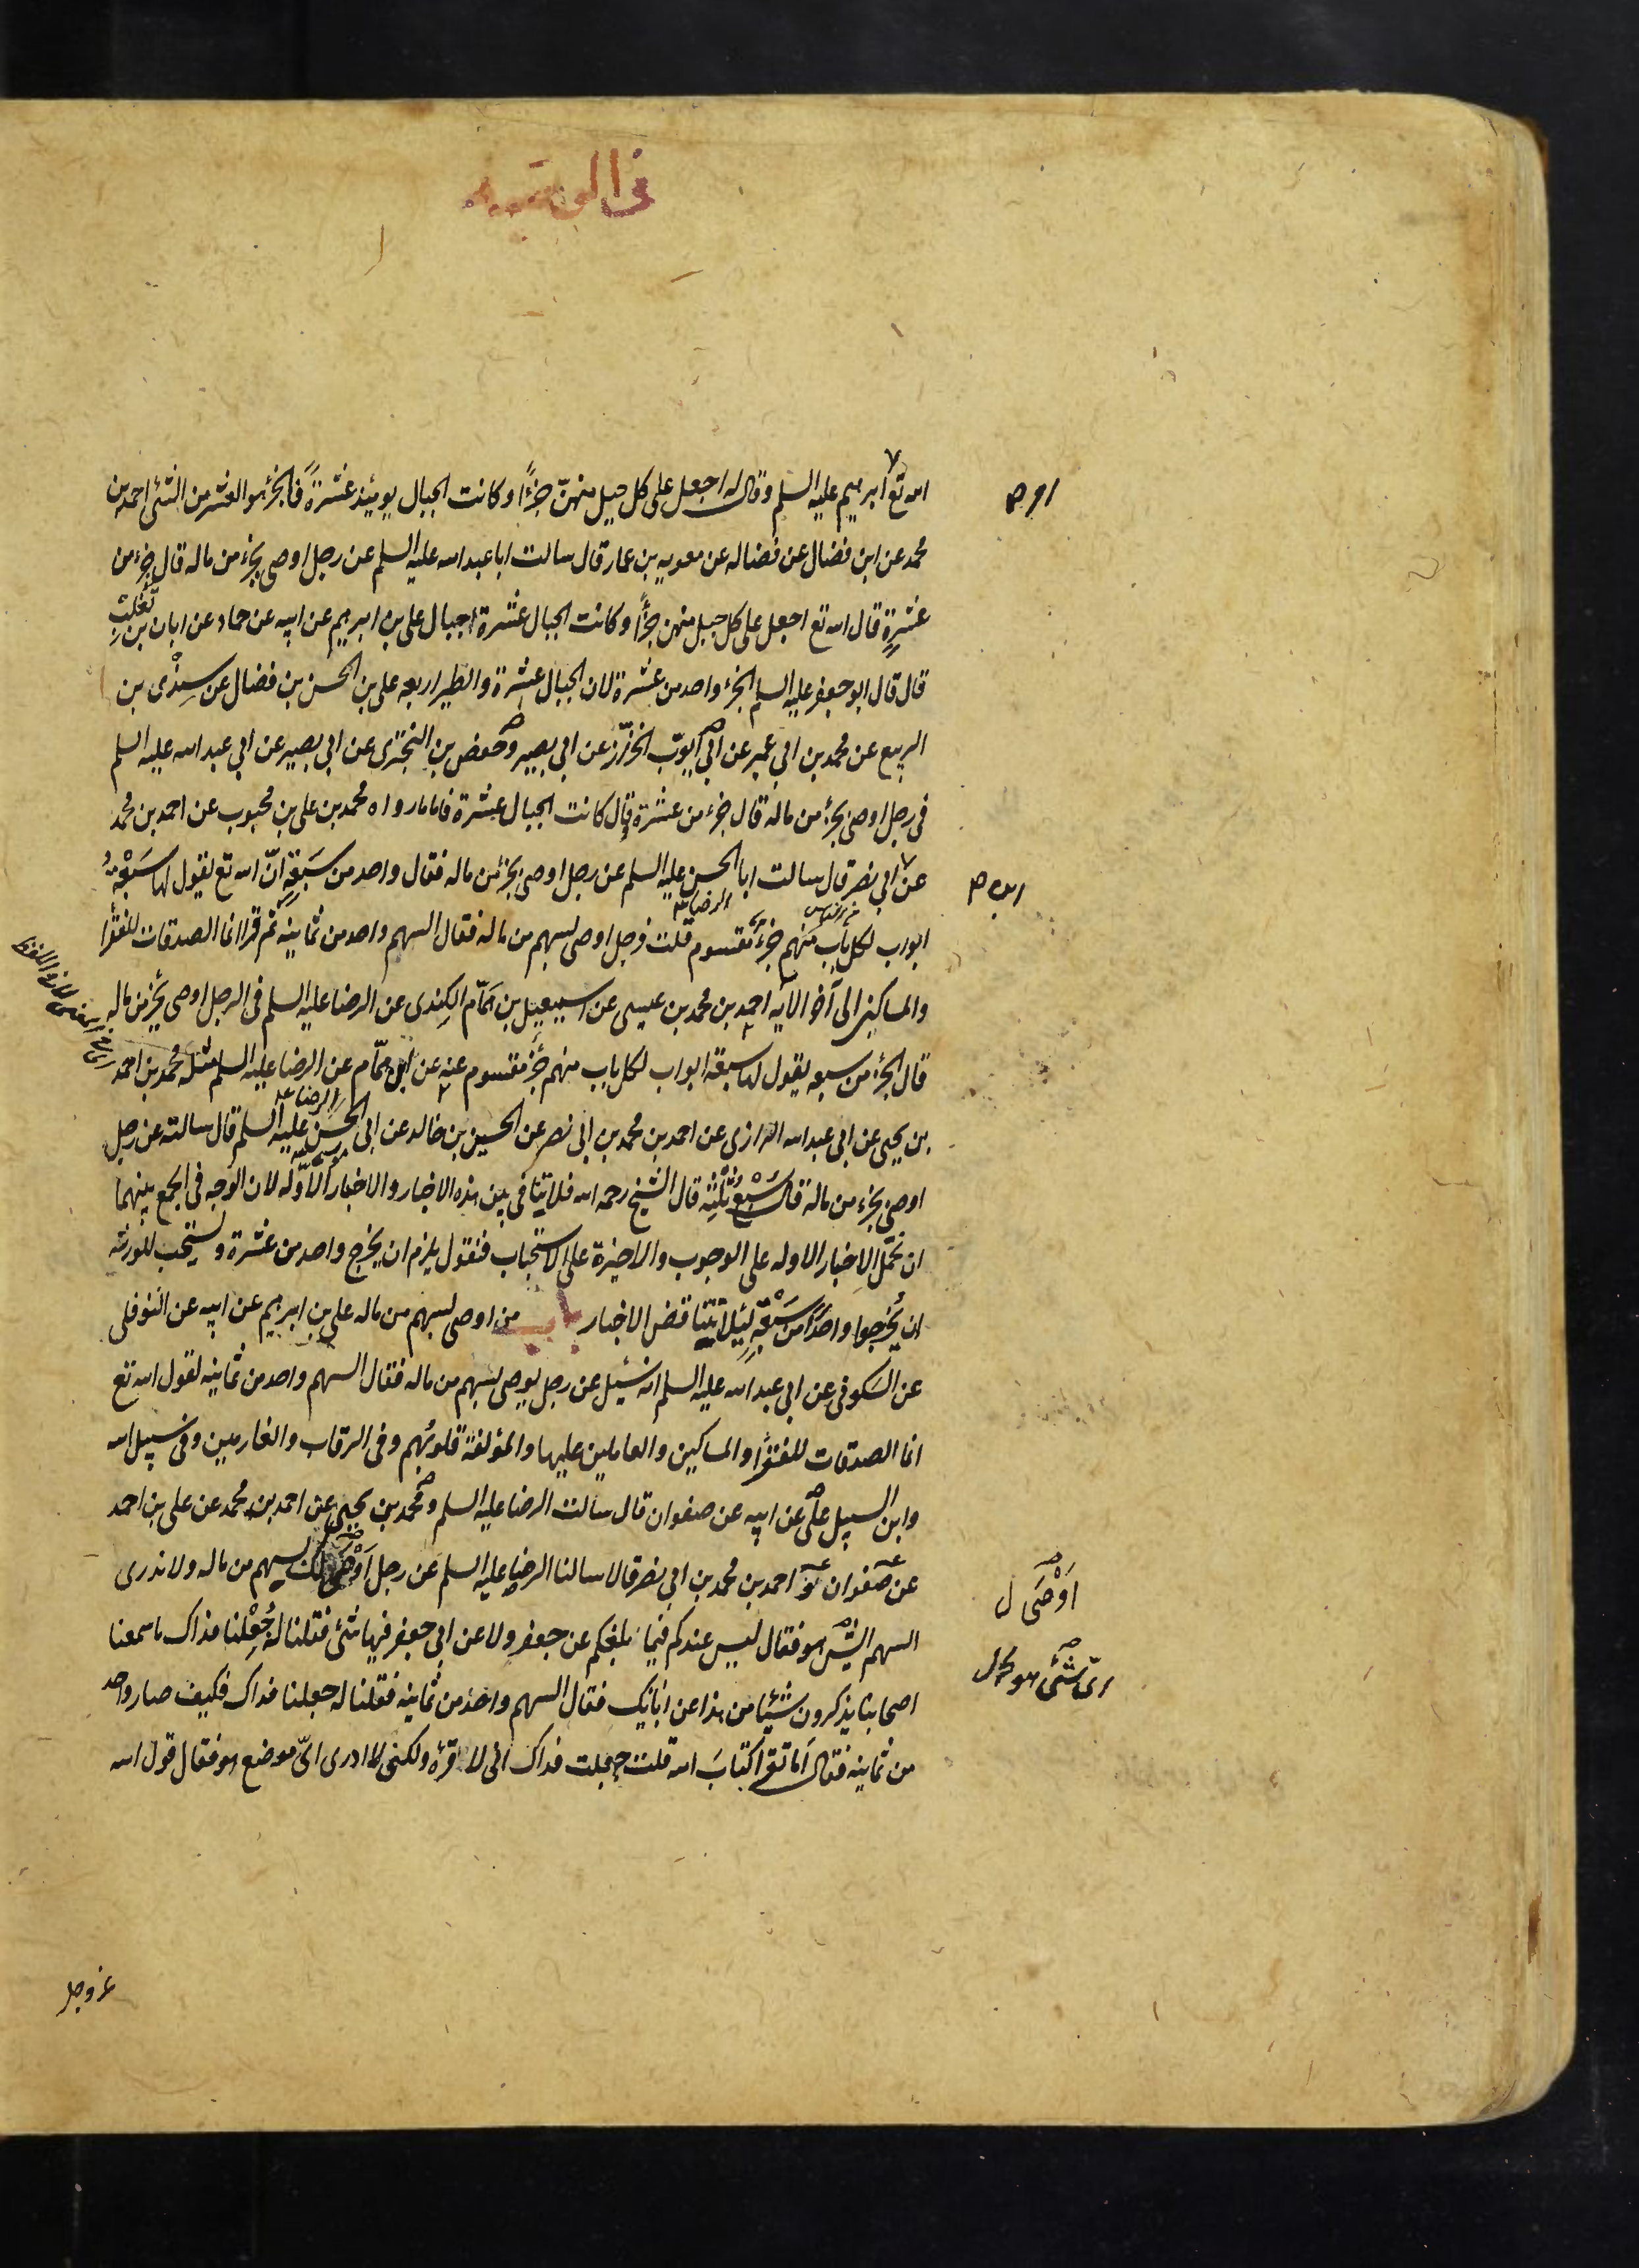 فى الوصيه
الله تع ابرهيم عليه السلم وقال له اجعل على كل جبل منهنّ جزءًا وكانت الجبال يومئذ عشرةً فالجزء هو العشر من الشئ احمد بن
محمد عن ابن فضال عن فضاله عن معويه بن عمار قال سالت ابا عبد الله عليه السلم عن رجل اوصى بجزء من ماله قال جزء من
عشرةٍ قال الله تع اجعل على كل جبل منهن جزءًا وكانت الجبال عشرة اجبال على بن ابرهيم عن ابيه عن حماد عن ابان بن تغلب
قال قال ابو جعفر عليه السلم الجزء واحد من عشرة لان الجبال عشرة والطير اربعه على بن الحسن بن فضال عن سِنْدى بن
الربيع عن محمد بن ابي عمير عن ابى ايوب الخزّز عن ابى بصير وحفص بن البختَرى عن ابي بصير عن ابي عبد الله عليه السلم
فى رجل اوصى بجزء من ماله قال جزء من عشرة قال كانت الجبال عشرة فاما ما رواه محمد بن على بن محبوب عن احمد بن محمد
عن ابي نصر قال سالت ابا الحسن عليه السلم عن رجل اوصى بجزء من ماله فقال واحد من سَبَعَةٍ انّ الله تع يقول لها سَبْعَةُ
الرضا ع
ابواب لكل باب منهم جزءٌ مقسوم قلت فرجل اوصى بسهم من ماله فقال السهم واحد من ثمانيه ثم قرا انما الصدقات للفقرا
والمساكين الى آخر الايه احمد بن محمد بن عيسى عن اسمعيل بن همّام الكِندى عن الرضا عليه السلم فى الرجل اوصى بجزء من ماله
قال الجزء من سبعه يقول لها سبعة ابواب لكل باب منهم جزء مقسوم عنه عن ابن همّام عن الرضا عليه السلم مثله محمد بن احمد
بن يحيى عن ابى عبد الله الرازى عن احمد بن محمد بن ابى نصر عن الحسين بن خالد عن ابى الحسن عليه السلم قال سالته عن رجل
اوصى بجزء من ماله قال سُبْعُ ثُلُثِه قال الشيخ رحمه الله فلا تنافى بين هذه الاخبار والاخبار الاوّله لان الوجه فى الجمع بينهما
ان نحمل الاخبار الاوله على الوجوب والاخيرة على الاستحباب فنقول يلزم ان يخرج واحد من عشرة ويستحب للورثه
ان يُخرجوا واحدًا من سَبْعَةٍ لئلا تتناقض الاخبار باب من اوصى بسهم من ماله على بن ابرهيم عن ابيه عن النوفلى
عن السكونى عن ابى عبد الله عليه السلم انه سُئِل عن رجل يوصى بسهم من ماله فقال السهم واحد من ثمانيه لقول الله تع
انما الصدقات للفقرا والمساكين والعاملين عليها والمؤلفة قلوبُهم وفى الرقاب والغارمين وفى سبيل الله
وابن السبيل علىّ عن ابيه عن صفوان قال سالت الرضا عليه السلم ومحمد بن يحيى عن احمد بن محمد عن على بن احمد
عن صفوان و احمد بن محمد بن ابى نصر قالا سالنا الرضا عليه السلم عن رجل اَوْصَى لك بسهم من ماله ولا ندرى
السهم اىّ شئ هو فقال ليس عندكم فيما بلغكم عن جعفر ولا عن ابى جعفر فيها شئ فقلنا له جُعِلْنا فداك ما سمعنا
اصحابنا يذكرون شيئا من هذا عن ابائك فقال السهم واحد من ثمانيه فقلنا له جعلنا فداك فكيف صار واحد
من ثمانيه فقال اَما تقرأ كتابَ الله قلت جعلت فداك انى لاقرؤه ولكنى لا ادرى اىّ موضع هو فقال قول الله
اَوْصَى ل
عزوجل